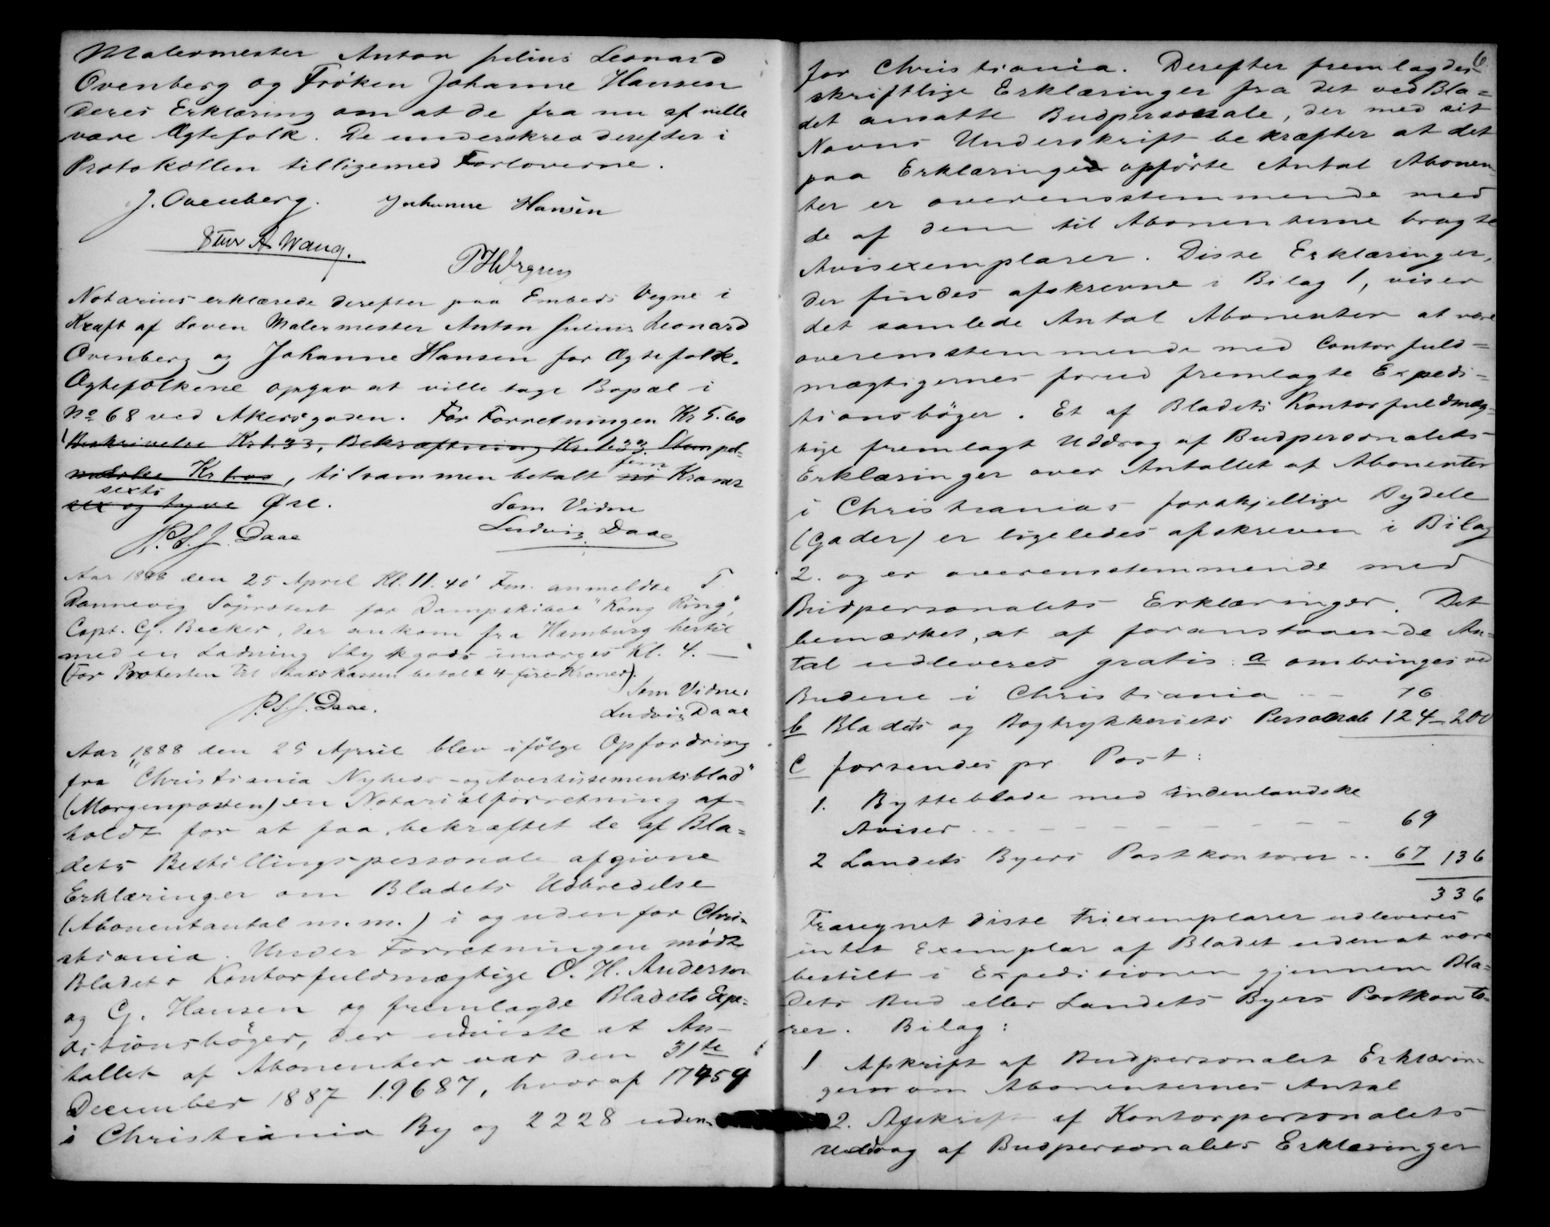 Malermester Anton Julius Leonard
Ovenberg og Frøken Johanne Hansen
deres Erklæring om at de fra nu af ville
være Ægtefolk. De underskrev derefter i
Protokollen tilligemed Forloverne.
J. Ovenberg. Johanne Hansen
A Waug.
Notarius erklærede derefter paa Embeds Vegne i
Kraft af Loven Malermester Anton Julius Leonard
Ovenberg og Johanne Hansen for Ægtefolk.
Ægtefolkene opgav at ville tage Bopæl i
No 68 ved Akersgaden. For Forretningen Kr 5.60
Beskrivelse Kr 1.33, Bekræftning Kr. 1.33, Stempel-
mærke Kr 1.00, tilsammen betalt fem Kroner
sexti
sex og tyve Øre.
Som Vidne
P. C. J. Daae
Ludvig Daae
Aar 1888 den 25 April Kl. 11.40 Fm. anmeldte T.
Dannevig Søprotest for Dampskibet "Kong Ring",
Capt. G. Becker, der ankom fra Hamburg hertil
med en Ladning Stykgods imorges kl. 4. —
(For Protesten til Statskassen betalt 4 fire Kroner).
Som Vidne:
P. C. J. Daae.
Ludvig Daae
Aar 1888 den 25 April blev ifølge Opfordring
fra "Christiania Nyheds- og Avertissementsblad"
(Morgenposten) en Notarialforretning af-
holdt for at faa bekræftet de af Bla=
dets Bestillingspersonale afgivne
Erklæringer om Bladets Udbredelse
(Abonentantal m.m.) i og udenfor Chri-
stiania. Under Forretningen mødte
Bladets Kontorfuldmægtige O. H. Andersen
og G. Hansen og fremlagde Bladets Expe-
ditionsbøger, der udviste at An-
tallet af Abonenter var den 31te
December 1887 19687, hvoraf 17459
i Christiania By og 2228 uden-
6
for Christiania. Derefter fremlagdes
skriftlige Erklæringer fra det ved Bla=
det ansatte Budpersonale, der med sit
Navns Underskrift bekræfter at det
paa Erklæringen opførte Antal Abonen
ter er overensstemmende med
de af dem til Abonenterne bragte
Avisexemplarer. Disse Erklæringer,
der findes afskrevne i Bilag 1, viser
det samlede Antal Abonenter at være
overensstemmende med Contorfuld=
mægtigernes forud fremlagte Expedi=
tionsbøger. Et af Bladets Kontorfuldmæg-
tige fremlagt Uddrag af Budpersonalets
Erklæringer over Antallet af Abonenter
i Christianias forskjellige Bydele
(Gader) er ligeledes afskreven i Bilag
2. og er overensstemmende med
Budpersonalets Erklæringer. Det
bemærkes, at af foranstaaende An=
tal udleveres gratis: a ombringes ved
Budene i Christiania - - 76
b Bladets og Bogtrykkeriets Personale 124 - 200
c forsendes pr Post:
1. Bytteblade med indenlandske
Aviser - - - - - - - - - 69
2 Landets Byers Postkontorer - - 67 136
336
Fraregnet disse Friexemplarer udleveres
intet Exemplar af Bladet uden at være
bestilt i Expeditionen gjennem Bla=
dets Bud eller Landets Byers Postkonto-
rer. Bilag:
1 Afskrift af Budpersonalets Erklærin-
gern om Abonenternes Antal
2. Afskrift af Kontorpersonalets
Uddrag af Budpersonalets Erklæringer